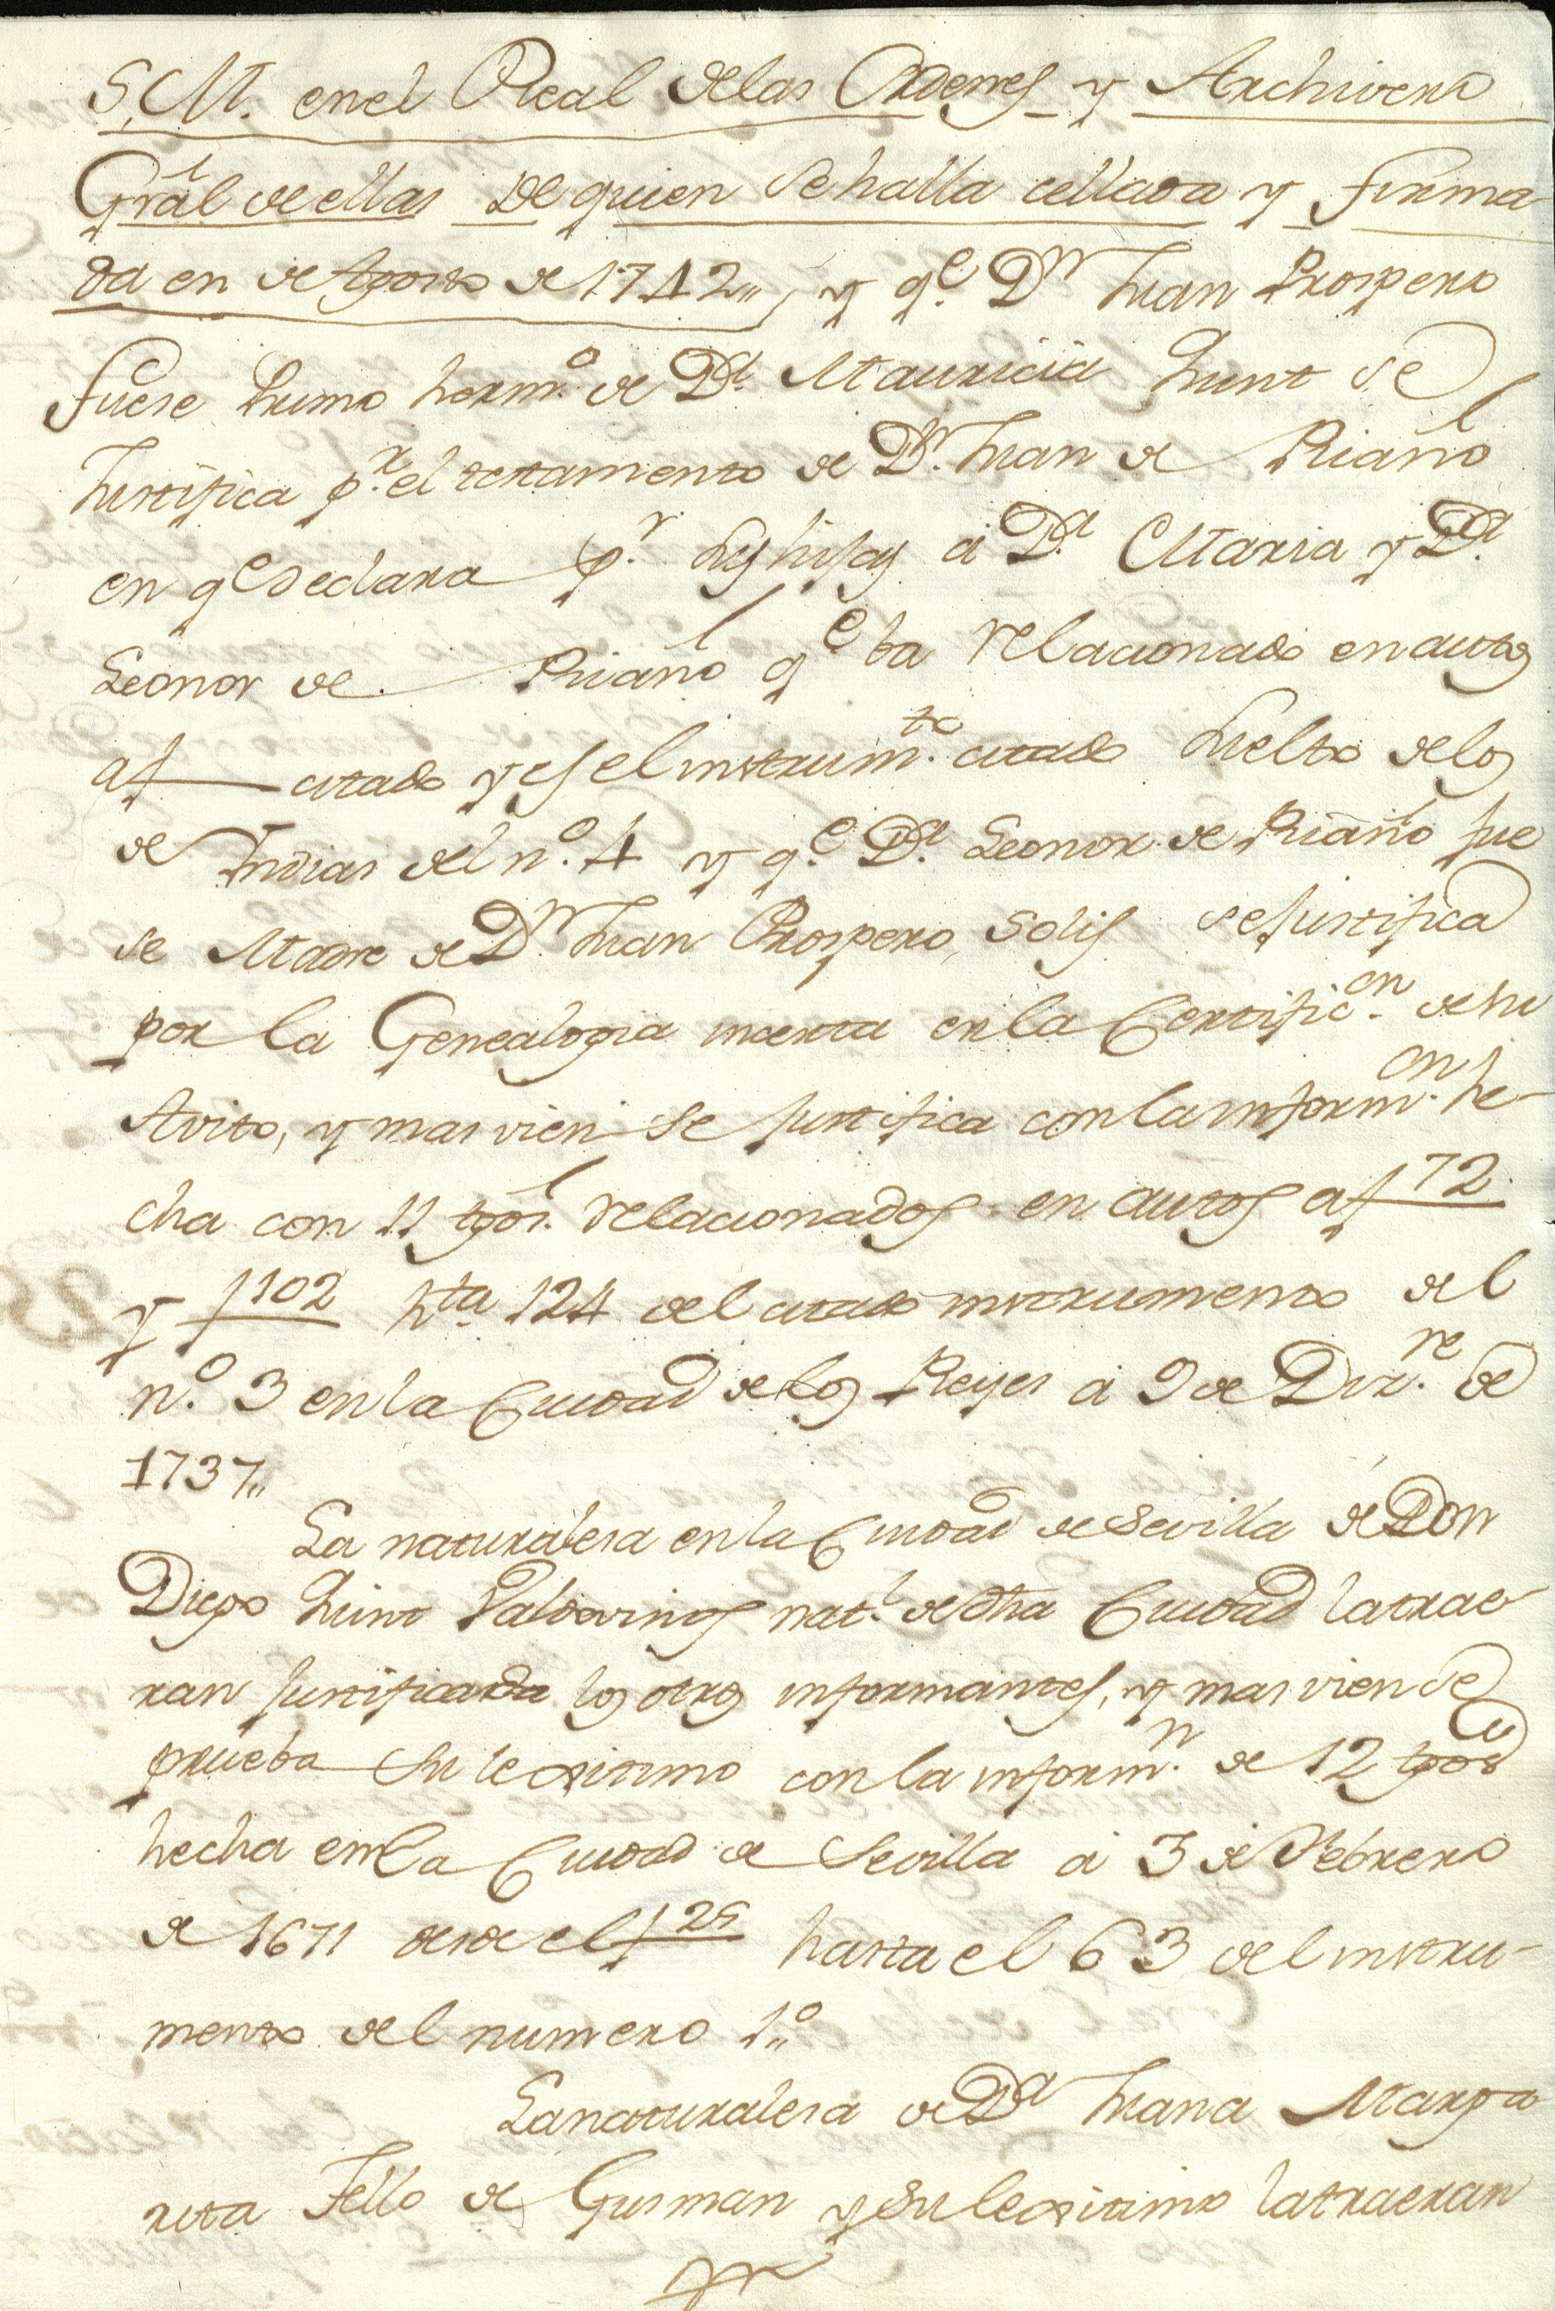 S.M. en el Real de las Ordenes y Archivero
Gral de ellas de quien se halla cellada y firma-
da en de Agosto de 1742,, y q.e Dn Juan Prospero
fuese Primo herm.o de D.a Mauricia Quint se
Justifica p.r el testamento de D.n Juan de Riaño
en q.e declara p.r sus hijas á D.a Maria y D.a
Leonor de Riaño q.e ba relacionado en autos
af citado y es el instrum.to citado suelto de los
de Indias del n.o 4 y q.e D.a Leonor de Riaño fue
se Madre de D.n Juan Prospero Solis se justifica
por la Genealogia inserta en la Certific.on de su
Avito, y mas vien se justifica con la inform.on he-
cha con 11 tgos. relacionados en autos af 72
y f 102 hta 124 del citado instrumento del
n.o 3 en la Ciudad de los Reyes á 9 de Diz.re de
1737,,
La naturalesa en la Ciudad de Sevilla de Don
Diego Quint Valdovinos nat.l de dha Ciudad la trae-
ran justificada los otros informantes, y mas vien se
prueba su lexitimo con la inform.n de 12 tgos
hecha en la Ciudad de Sevilla á 3 de Febrero
de 1671 desde el f 25 hasta el 63 del instru-
mento del numero 1.o
La naturalesa de D.a Juana Marga
rita Tello de Gusman y su lexitimo la traeran